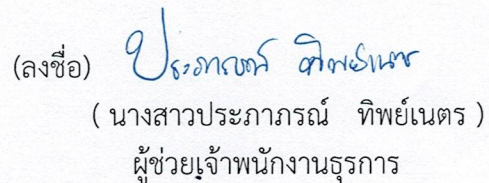 (ลงชื่อ) ประภาภรณ์ ทิพย์เนตร
( นางสาวประภาภรณ์ ทิพย์เนตร )
ผู้ช่วยเจ้าพนักงานธุรการ